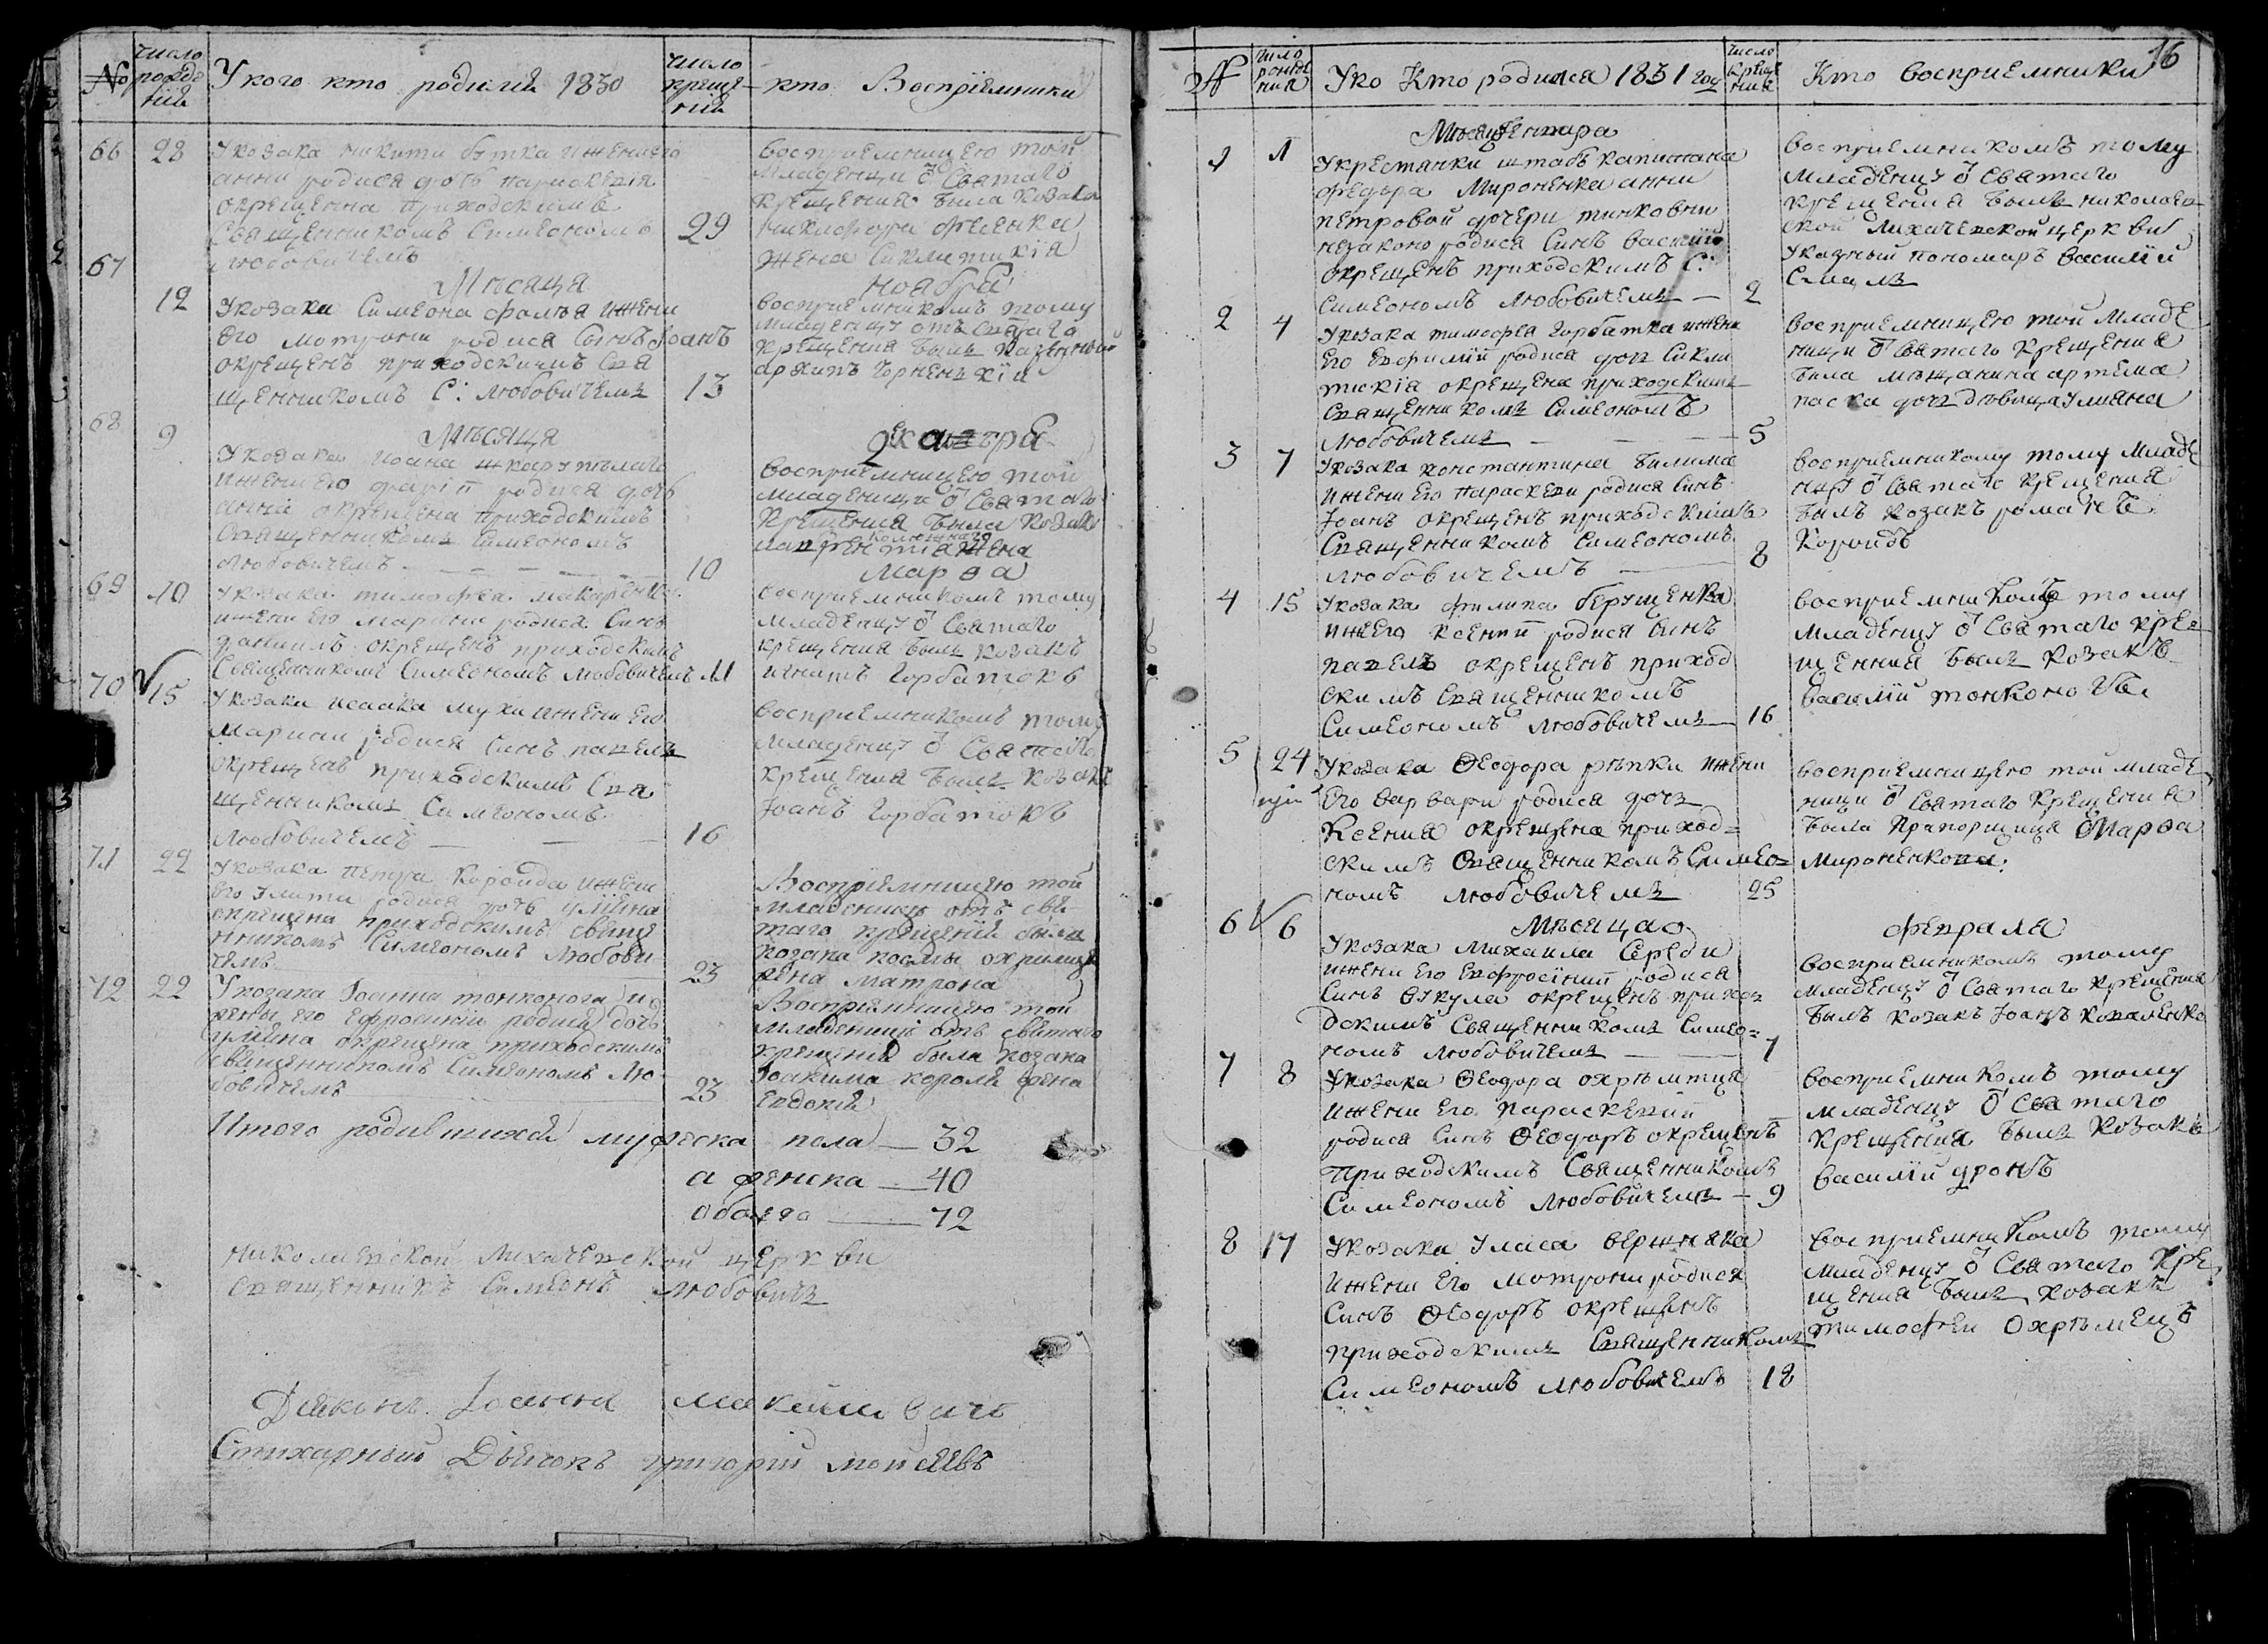 No
число рожде нія
У кого кто родился 1830
число креще нія
кто Воспріемники
66 28 У козака никити бутка ижени его
анни родися дочь параскевія
окрещенна приходскимъ
Священникомъ Симеономъ 29
Любовичемъ
восприемницею той
младенци ѿ Святаго
крещения была козака
никифора фесенка
жена Сиклитикія
67 Мѣсяца ноября
12 У козака Симеона ижени
его мотрони родися Синъ Іоанъ
окрещенъ приходскимъ Свя
щенникомъ С: Любовичемъ 13
восприемникомъ тому
младенцу отъ Святаго
крещения былъ
архипъ
68 Мѣсяца декабря
9 У козака Иоана
ижени его дарїи родися дочь
анна окрещена приходскимъ
Священникомъ Симеономъ
Любовичемъ 10
восприемницею той
младеници ѿ Святаго
крещения была козака
жена
Марѳа
69 10 У козака тимофея макаренка
ижени его марини родися Синъ
даниилъ окрещенъ приходскимъ
Священникомъ Симеономъ Любовичемъ 11
восприемникомъ тому
младенцу ѿ Святаго
крещения былъ козакъ
игнатъ Горбатокъ
70 15 У козака исаака мухи ижени его
Мариан родися Синъ павелъ
окрещенъ приходскимъ Свя
щенникомъ Симеономъ
Любовичемъ 16
восприемникомъ тому
младенцу ѿ Святаго
крещения былъ козакъ
Іоанъ Горбатокъ
71 22 У козака петра Короида ижени
его улити родися дочь уліяна
окрещена приходскимъ свяще
нникомъ Симеономъ Любови
чемъ 23
Воспріемницею той
младеници отъ свя
таго крещенія была
козака космы
жена матрона
72 22 У козака Іоанна тонконога и
жены его Ефросиніи родися дочь
уліяна окрещена приходскимъ
священникомъ Симеономъ Лю
бовичемъ 23
Воспріемницею той
младеници отъ святаго
крещенія была козака
Іоакима короля жена
Евдокія
Итого родившихся мужеска пола — 32
а женска — 40
обоего — 72
николаевской Лихачевской церкви
священникъ Симеонъ Любовичъ
Діаконъ Іоаннъ Максимовичъ
Стихарный Дьячокъ григорій моисеевъ
16
№
число рожде ния
У ко Кто родился 1831 году
число креще ния
Кто восприемники
Мѣсяца Генвара
1 1 У крестянки штабъ капитана
Федора Мироненка анни
петровой дочери
незаконо родися Синъ василій
окрещенъ приходскимъ С:
Симеономъ Любовичемъ — 2
восприемникомъ тому
младенцу ѿ Святаго
крещения былъ николаев
ской Лихачевской церкви
указный пономаръ василій
2 4 У козака тимофея Горбатка ижени
его Евфимїй родися доч Сикли
тикія окрещена приходскимъ
Священникомъ Симеономъ
Любовичемъ — 5
восприемницею той младе
ници ѿ Святаго крещения
была мѣщанина артема
паска дочъ дѣвица Улияна
3 7 У козака константина Билима
ижени его Параскеви родися Синъ
Іоанъ окрещенъ приходскимъ
Священникомъ Симеономъ
Любовичемъ 8
восприемникому тому младе
нцу ѿ Святаго крещения
былъ козакъ романъ
Короидъ
4 15 У козака филипа Берущенка
ижего ксении родися Синъ
павелъ окрещенъ приход
скимъ Священникомъ
Симеономъ Любовичемъ — 16
восприемникомъ тому
младенцу ѿ Святаго кре
щенния былъ козакъ
василій тонконогъ
5 24 У козака Ѳеодора рѣпки ижени
его варвари родися дочъ
ксения окрещена приход=
скимъ Священникомъ Симео=
номъ Любовичемъ 25
восприемницею той младе
ници ѿ Святаго крещения
была Прапорщица Марѳа
Мироненкова:
Мѣсяца февраля
6 6 У козака Михаила Середи
ижени его Евфросиний родися
Синъ Окрещенъ прихо
дскимъ Священникомъ Симео=
номъ Любовичемъ — 7
восприемникомъ тому
младенцу ѿ Святаго крещения
былъ козакъ Іоанъ Коваленко
7 8 У козака Ѳеодора охрѣмтця
ижени его Параскевий
родися Синъ Ѳеодоръ окрещенъ
приходскимъ Священникомъ
Симеономъ Любовичемъ — 9
восприемникомъ тому
младенцу ѿ Святаго
крещения былъ козакъ
василій дронъ
8 17 У козака Уласа вершняка
ижени его Мотрони родися
Синъ Ѳеодоръ окрещенъ
приходскимъ Священникомъ
Симеономъ Любовичемъ 18
восприемникомъ тому
младенцу ѿ Святаго кре
щения былъ козакъ
тимофеи Охрѣмецъ